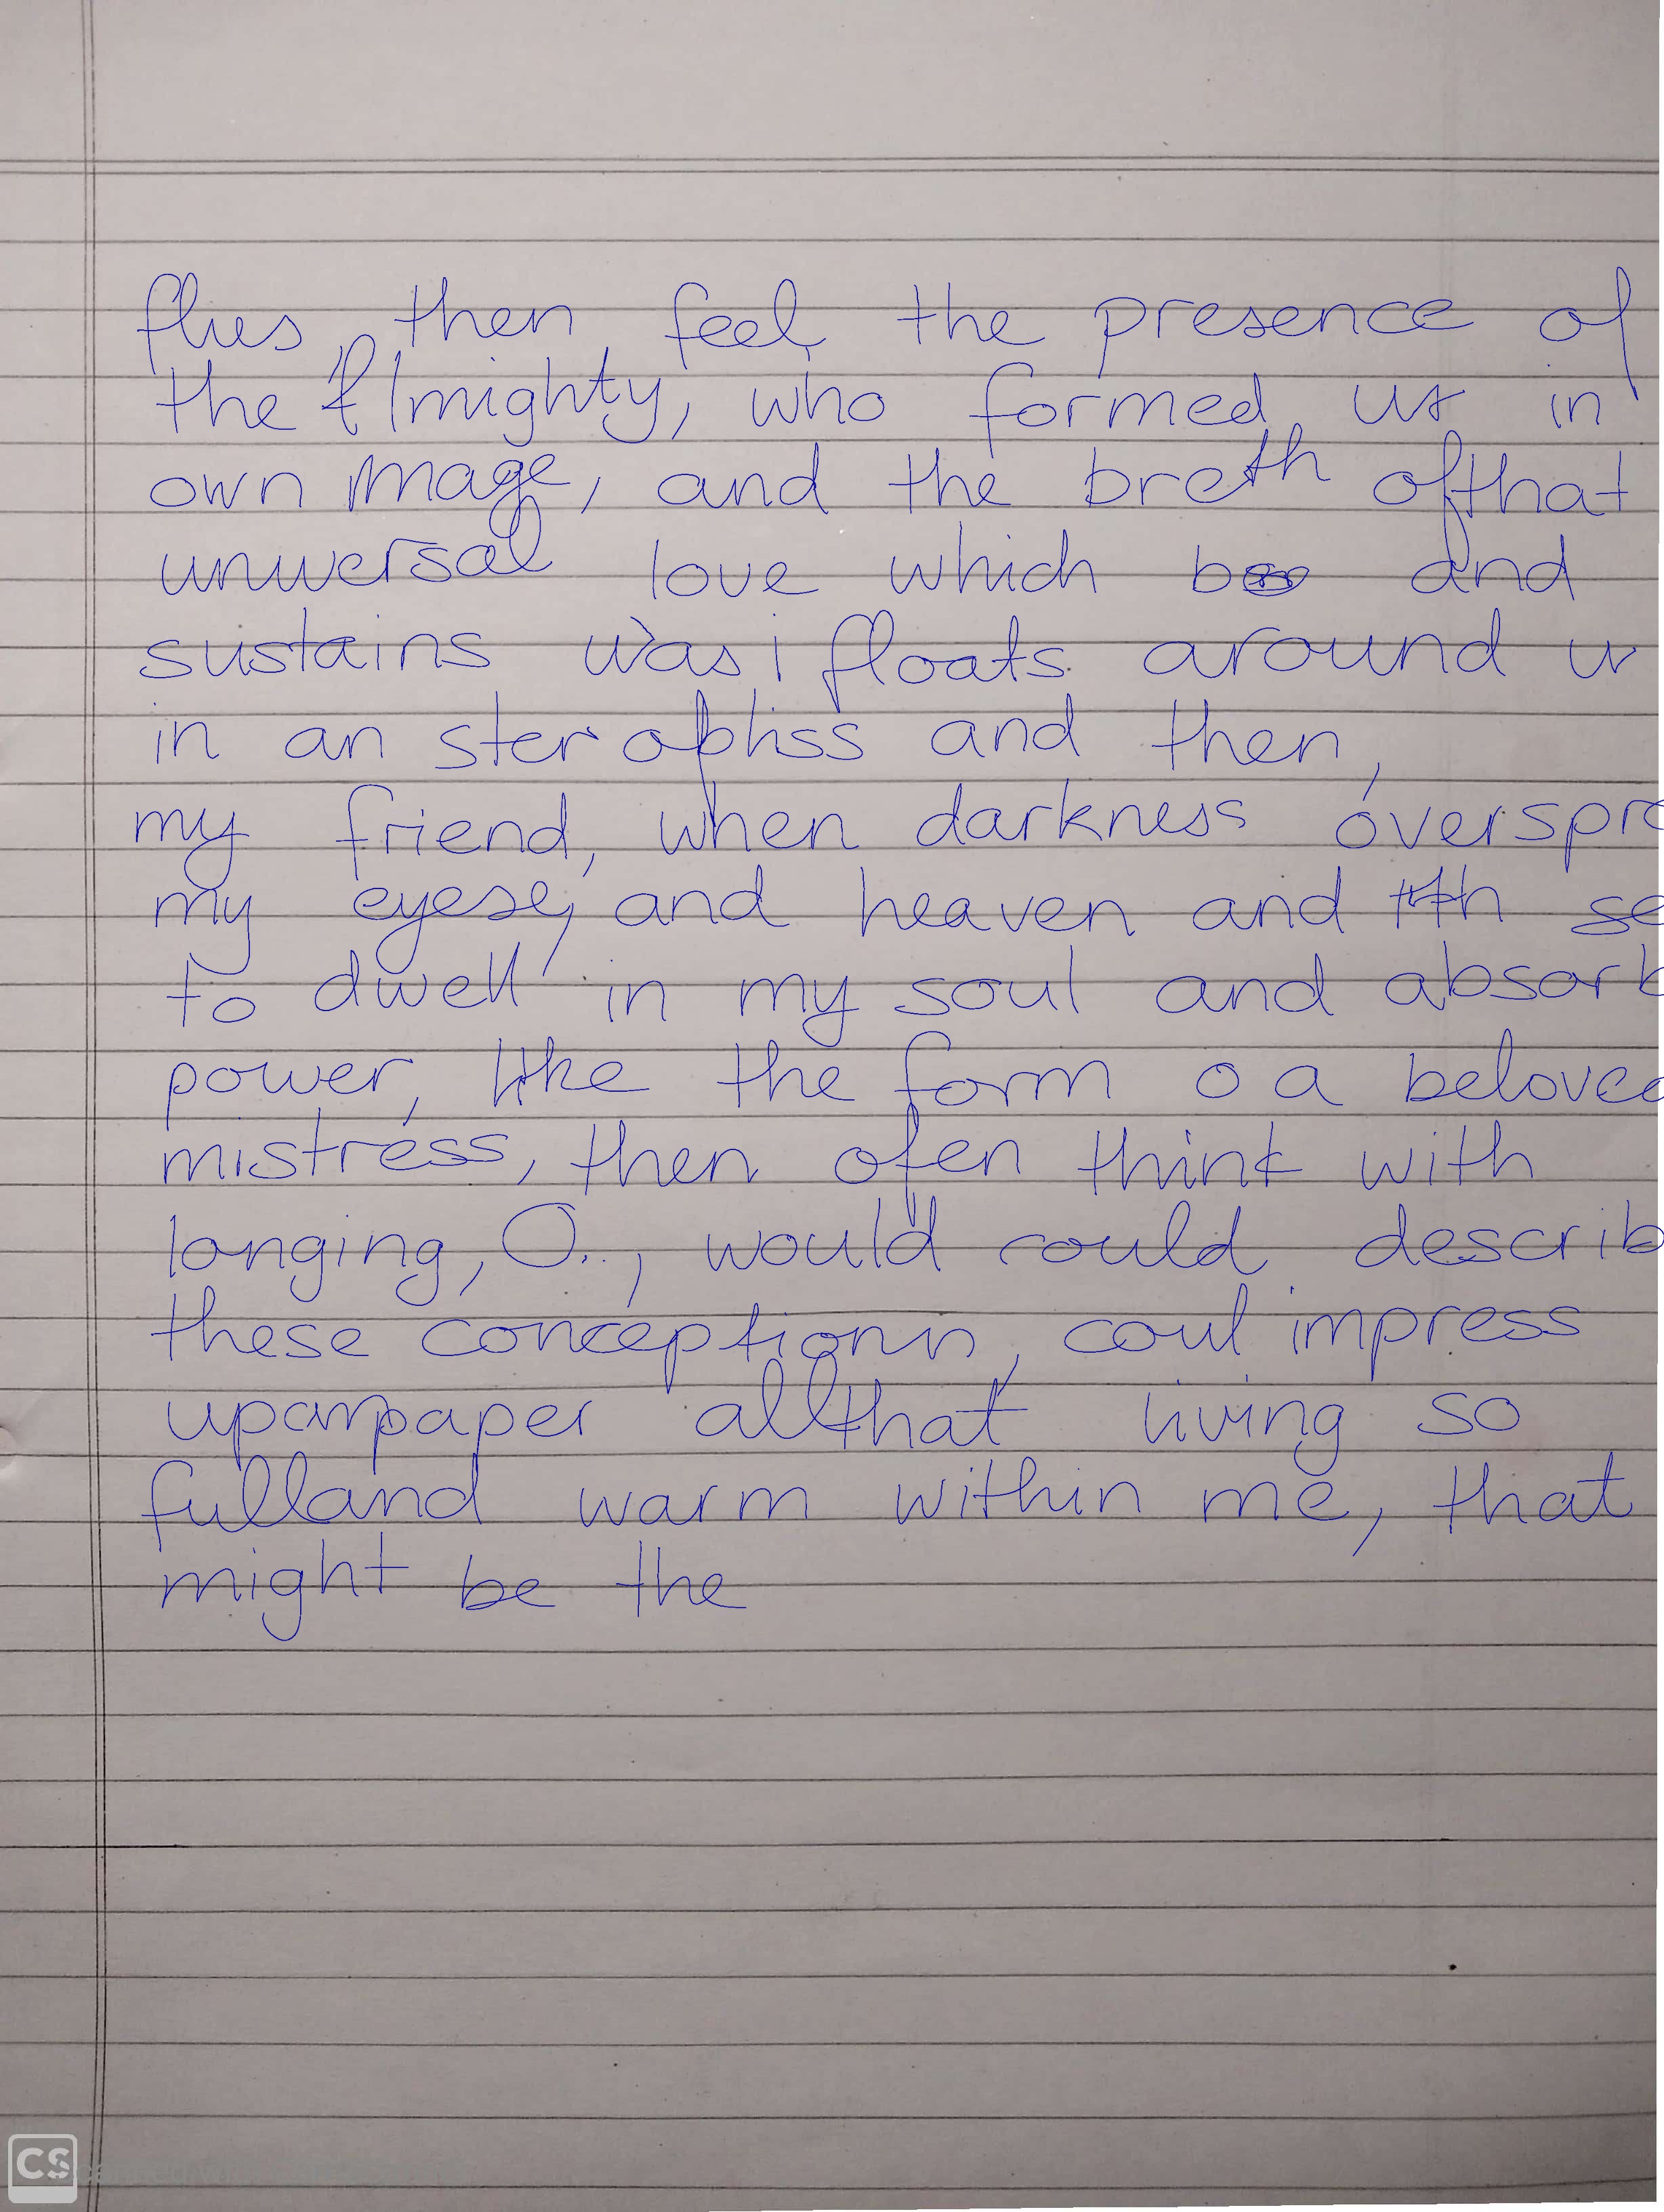 flies, then feel the presence of
the Almighty, who formed us in
own image, and the breth ofthat
universal love which and
sustains was i floats around u
in an ster ofbliss and then,
my friend, when darkness overspre
my eyese, and heaven and se
to dwell in my soul and absorb
power, like the form o a beloved
mistress, then ofen think with
longing, O., would could describ
these conceptions, coul impress
uponpaper allthat living so
fulland warm within me, that
might be the
CS